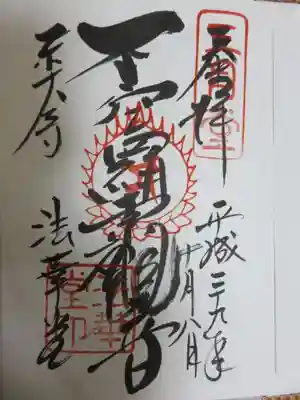 奉拝
三月堂
平成二九年
十月八日
不空羂索観音
東大寺
法華堂
法華堂印